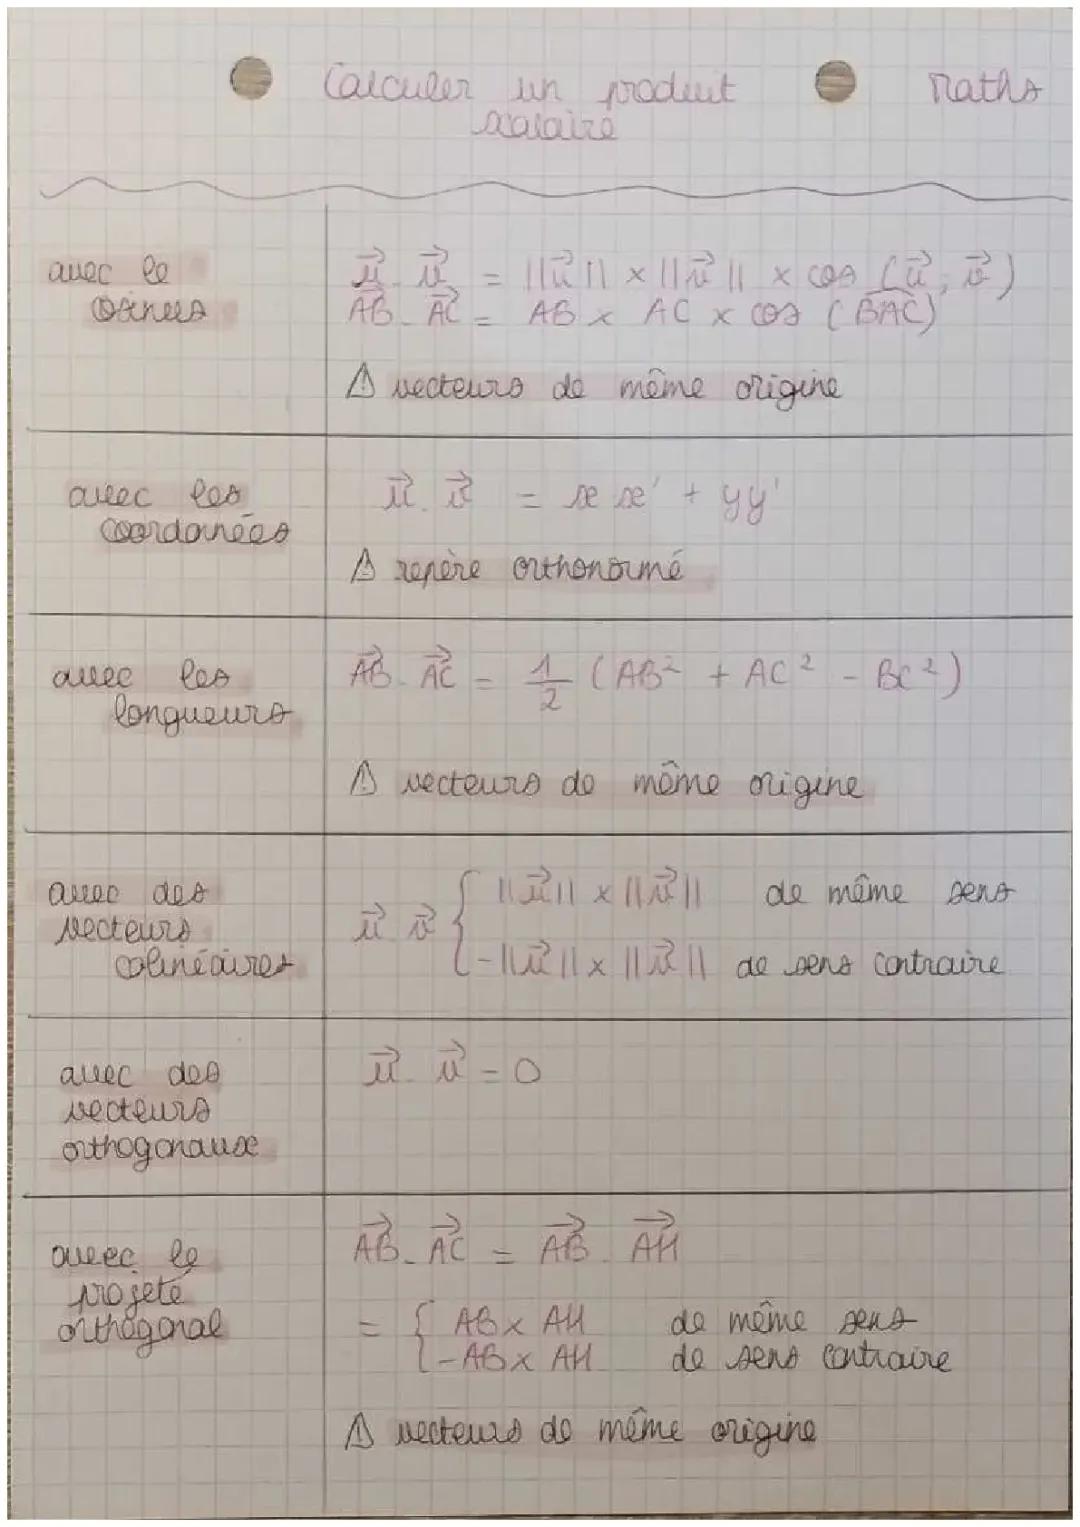 Calculer un produit
scalaire
Maths
avec le
cosinus
u⃗ . v⃗ = ||u⃗|| × ||v⃗|| × cos (u⃗ ; v⃗)
AB⃗ . AC⃗ = AB × AC × cos (BAC)
⚠ vecteurs de même origine
avec les
coordonées
u⃗ . v⃗ = xx' + yy'
⚠ repère orthonormé
avec les
longueurs
AB⃗ . AC⃗ = 1/2 (AB² + AC² - BC²)
⚠ vecteurs de même origine
avec des
vecteurs
colinéaires
u⃗ . v⃗ { ||u⃗|| × ||v⃗|| de même sens
-||u⃗|| × ||v⃗|| de sens contraire
avec des
vecteurs
orthogonaux
u⃗ . v⃗ = 0
avec le
projeté
orthogonal
AB⃗ . AC⃗ = AB⃗ . AH⃗
= { AB × AH de même sens
-AB × AH de sens contraire
⚠ vecteurs de même origine